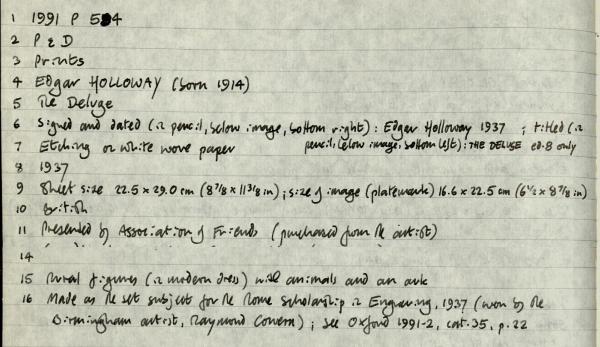 1 1991 P 594
2 P & D
3 Prints
4 Edgar HOLLOWAY (born 1914)
5 The Deluge
6 Signed and dated (in pencil, below image, bottom right): Edgar Holloway 1937 ; titled (in
7 Etching on white wove paper pencil, below image, bottom left): THE DELUGE ed. 8 only
8 1937
9 Sheet size 22.5 x 29.0 cm (8 7/8 x 11 3/8 in); size of image (platemark) 16.6 x 22.5 cm (6 1/2 x 8 7/8 in)
10 British
11 Presented by Association of Friends (purchased from the artist)
14
15 Rural figures (in modern dress) with animals and an ark
16 Made as the set subject for the Rome Scholarship in Engraving, 1937 (won by the
Birmingham artist, Raymond Cowern); see Oxford 1991-2, cat. 35, p. 22